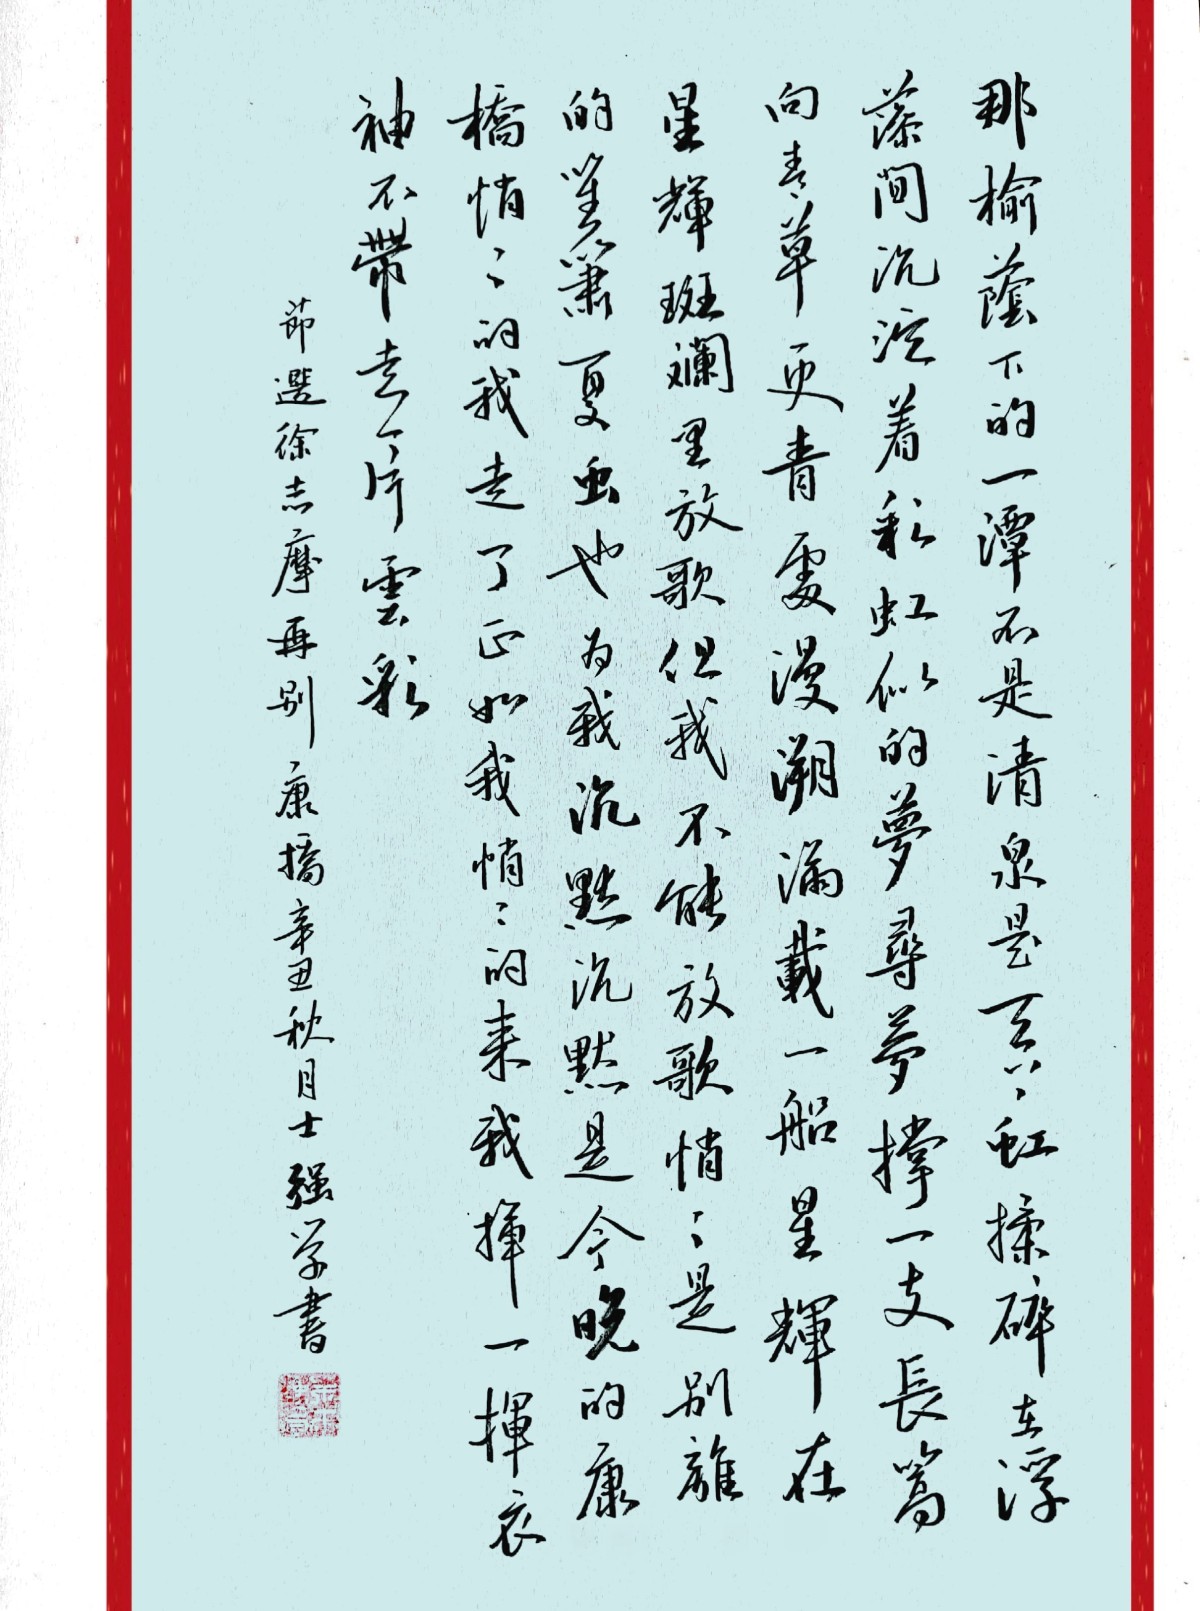 那榆蔭下的一潭不是清泉是天上虹揉碎在浮
藻間沉淀着彩虹似的夢尋夢撑一支長篙
向青草更青處漫溯滿載一船星輝在
星輝斑斕里放歌但我不能放歌悄〻是别離
的笙簫夏虫也为我沉默沉默是今晚的康
橋悄〻的我走了正如我悄〻的来我揮一揮衣
袖不帶走一片雲彩
節選徐志摩再别康橋辛丑秋月士强学書